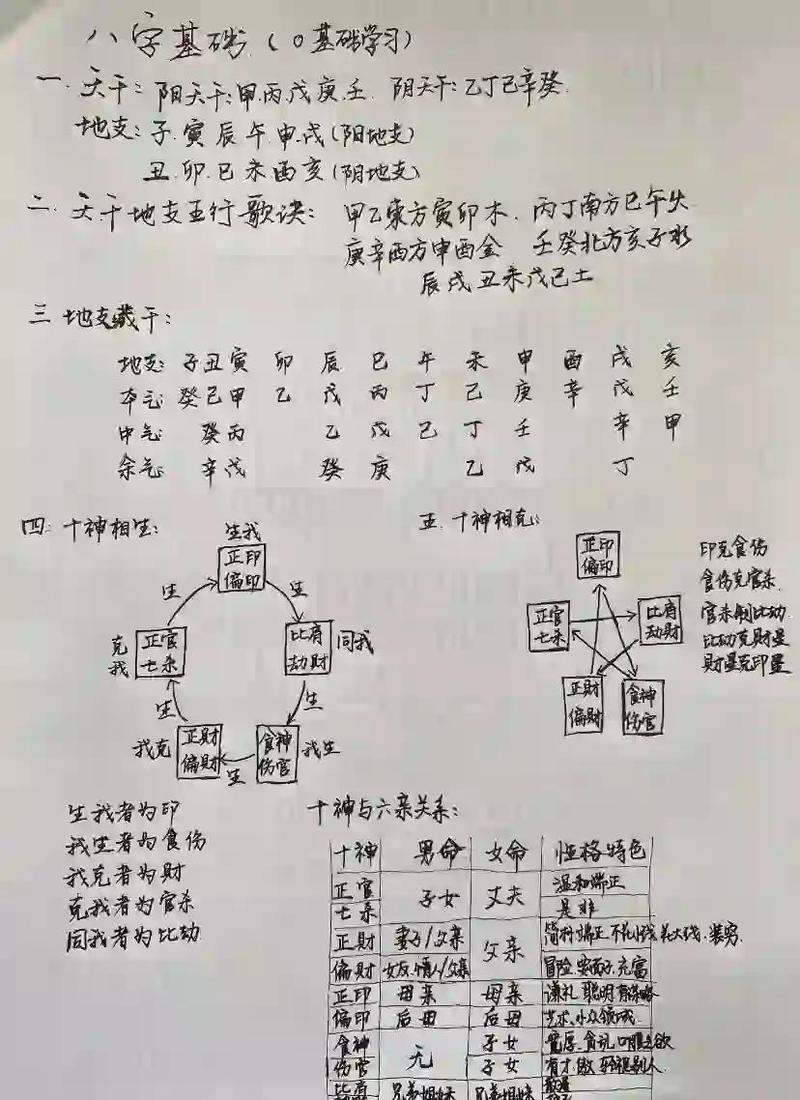 八字基础(0基础学习)
一. 天干: 阳天干: 甲.丙.戊庚.壬. 阴天干: 乙丁己辛癸.
地支: 子.寅.辰.午.申.戌(阳地支)
丑.卯.巳.未酉亥(阴地支)
二. 天干地支五行歌诀: 甲乙東方寅卯木. 丙丁南方巳午火
庚辛西方申酉金 壬癸北方亥子水
辰戌丑未戊己土
三 地支藏干:
地支: 子 丑 寅 卯 辰 巳 午 未 申 酉 戌 亥
本气: 癸 己 甲 乙 戊 丙 丁 己 庚 辛 戊 壬
中气: 癸 丙 乙 戊 己 丁 壬 辛 甲
余气: 辛 戊 癸 庚 乙 戊 丁
四. 十神相生:
生我
正印
偏印
生
生
克我
正官
七杀
比肩
劫財
同我
生
生
我克
正財
偏財
生
食神
伤官
我生
五. 十神相克:
正印
偏印
正官
七杀
比肩
劫財
正財
偏財
食神
伤官
印克食伤
食伤克官杀.
官杀制比劫.
比劫克財星
財星克印星
生我者为印
我生者为食伤
我克者为財
克我者为官杀
同我者为比劫
十神与六亲关系:
十神 男命 女命 性格特色
正官 子女 丈夫 温和端正
七杀 是非
正財 妻子/父亲 父亲
偏財 女友.情人/父亲 冒险.要面子.充富
正印 母亲 母亲 谦礼.聪明.有策略
偏印 后母 后母 艺术.小众领域.
食神 无 子女 宽厚.食说.口腹之欲
伤官 子女 有才.傲.轻视别人.
兄弟姐妹 兄弟姐妹